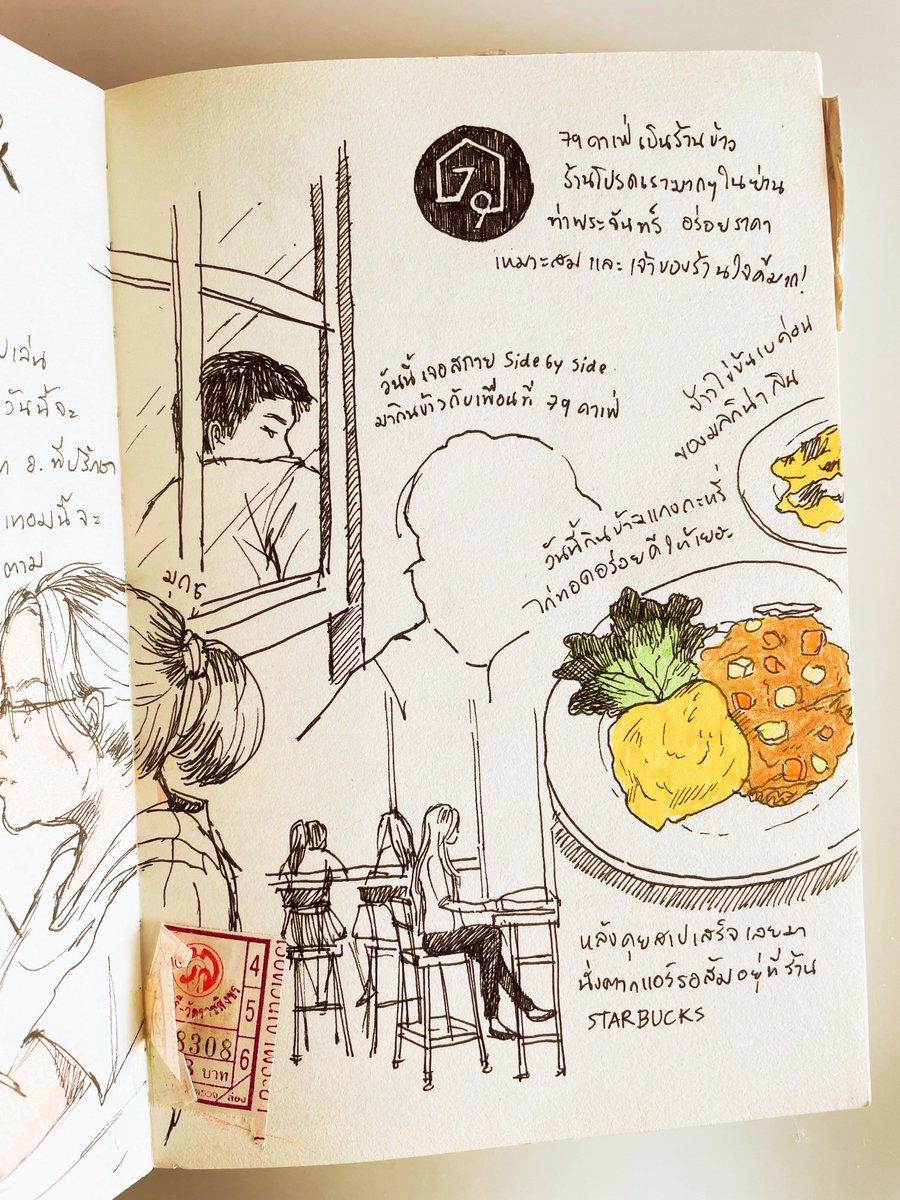 79
79 คาเฟ่ เป็นร้านข้าว
ร้านโปรดเรามากๆ ในย่าน
ท่าพระจันทร์ อร่อย ราคา
เหมาะสม และ เจ้าของร้านใจดีมาก!
วันนี้ เจอสกาย Side by Side
มากินข้าวกับเพื่อนที่ 79 คาเฟ่
ข้าวไข่ข้นเบค่อน
ของมุก น่ากิน
วันนี้กินข้าวแกงกะหรี่
ไก่ทอดอร่อยดี ให้เยอะ
มุกซู
เล่น
วันนี้จะ
อ. ที่ปรึกษา
เทอมนี้ จะ
ตาม
หลังคุยสาเปเสร็จ เลยมา
นั่งตากแอร์รอส้มอยู่ที่ร้าน
STARBUCKS
8308
บาท
4
5
6